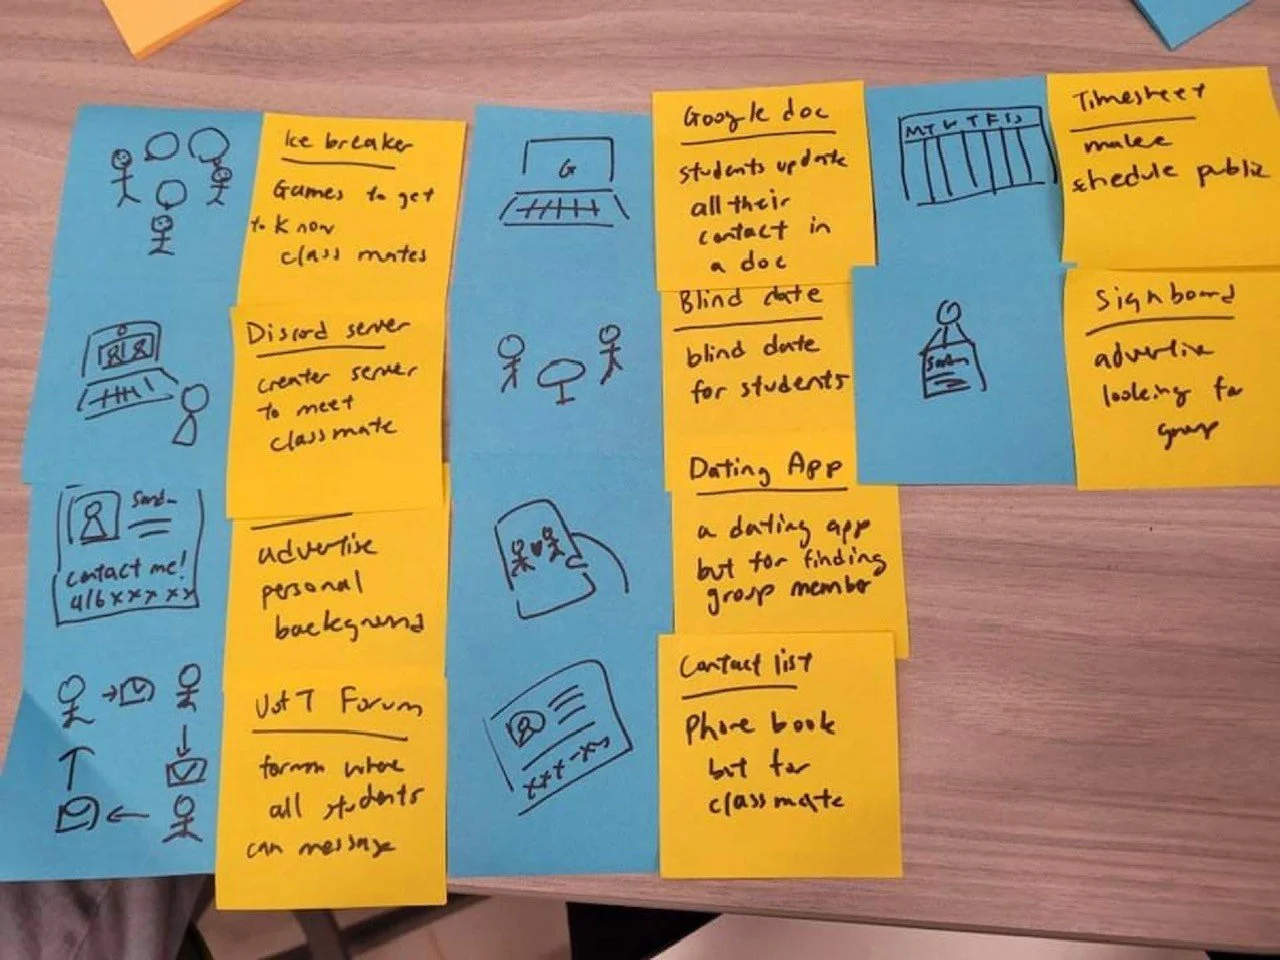 Ice breaker
Games to get
to know
class mates
Discord server
creater server
to meet
classmate
contact me!
416 xxx xx
advertise
personal
background
UofT Forum
where
all students
can message
G
Google doc
students update
all their
contact in
a doc
Blind date
blind date
for students
Dating App
a dating app
but for finding
group member
xxx-xx
Contact list
Phone book
but for
classmate
M T W T F S S
Timesheet
make
schedule public
Signboard
advertise
looking for
group